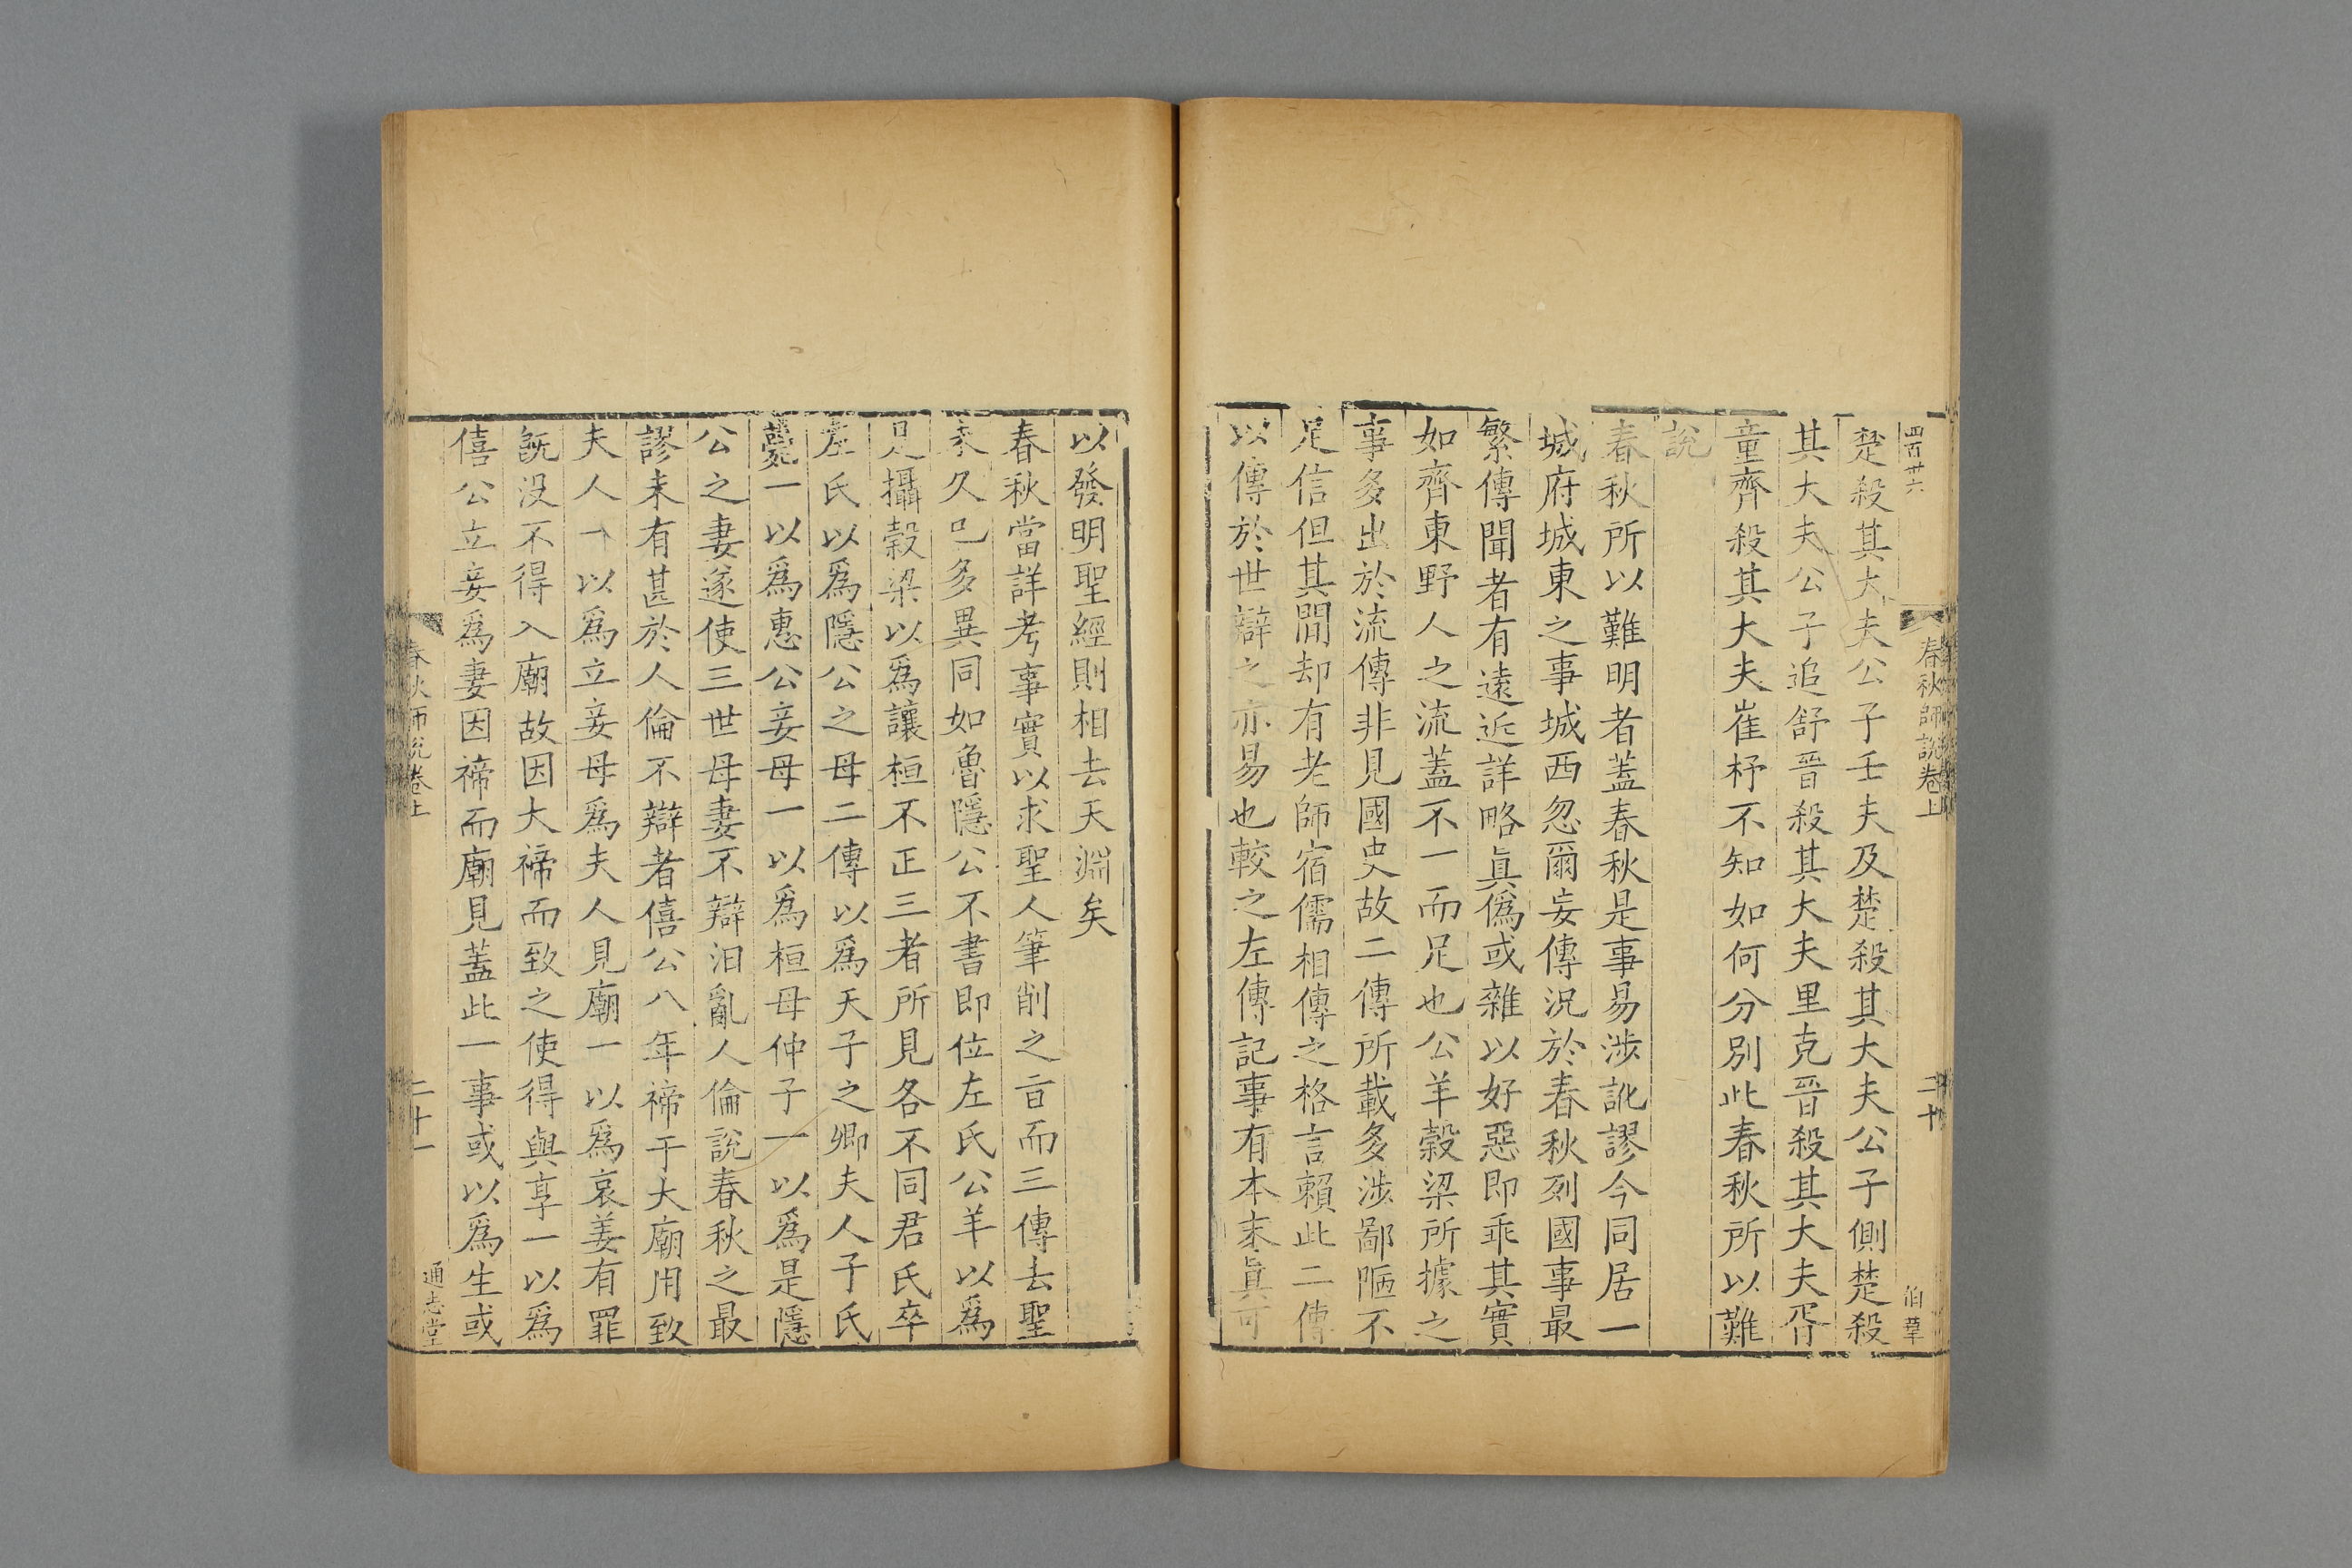 四百廿六
春秋師說卷上
二十
伯華
楚殺其大夫公子壬夫及楚殺其大夫公子側楚殺
其大夫公子追舒晉殺其大夫里克晉殺其大夫胥
童齊殺其大夫崔杼不知如何分別此春秋所以難
說
春秋所以難明者蓋春秋是事易涉訛謬今同居一
城府城東之事城西忽爾妄傳況於春秋列國事最
繁傳聞者有遠近詳略眞僞或雜以好惡即乖其實
如齊東野人之流蓋不一而足也公羊穀梁所據之
事多出於流傳非見國史故二傳所載多涉鄙陋不
足信但其間却有老師宿儒相傳之格言賴此二傳
以傳於世辯之亦易也較之左傳記事有本末眞可
以發明聖經則相去天淵矣
春秋當詳考事實以求聖人筆削之旨而三傳去聖
未久已多異同如魯隱公不書即位左氏公羊以爲
是攝穀梁以爲讓桓不正三者所見各不同君氏卒
左氏以爲隱公之母二傳以爲天子之卿夫人子氏
薨一以爲惠公妾母一以爲桓母仲子一以爲是隱
公之妻遂使三世母妻不辯汨亂人倫說春秋之最
謬未有甚於人倫不辯者僖公八年禘于大廟用致
夫人一以爲立妾母爲夫人見廟一以爲哀姜有罪
旣没不得入廟故因大禘而致之使得與享一以爲
僖公立妾爲妻因禘而廟見蓋此一事或以爲生或
春秋師說卷上
二十一
通志堂